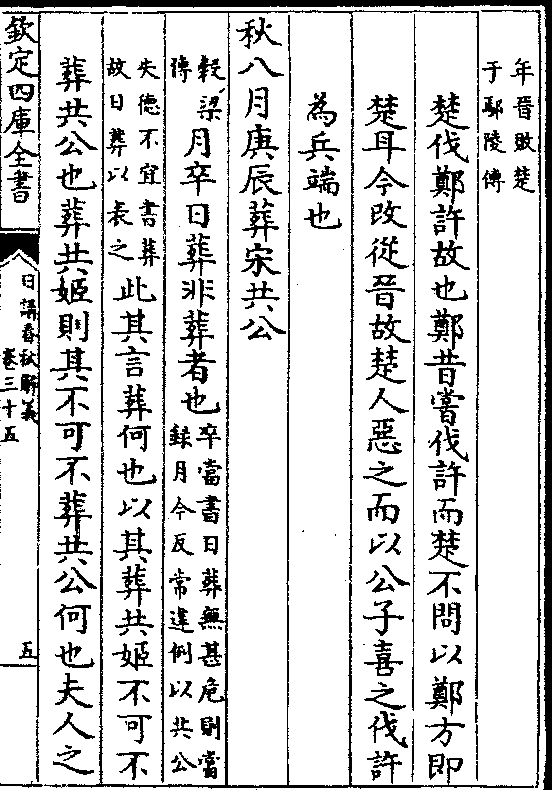 年晉敗楚
于鄢陵傳
楚伐鄭許故也鄭昔嘗伐許而楚不問以鄭方即
楚耳今改從晉故楚人惡之而以公子喜之伐許
為兵端也
秋八月庚辰葬宋共公
穀梁
傳
月卒日葬非葬者也
卒當書日葬無甚危則當
錄月今反常違例以共公
失德不宜書葬
故日葬以表之
此其言葬何也以其葬共姬不可不
葬共公也葬共姬則其不可不葬共公何也夫人之
欽定四庫全書
日講春秋解義
卷三十五
五